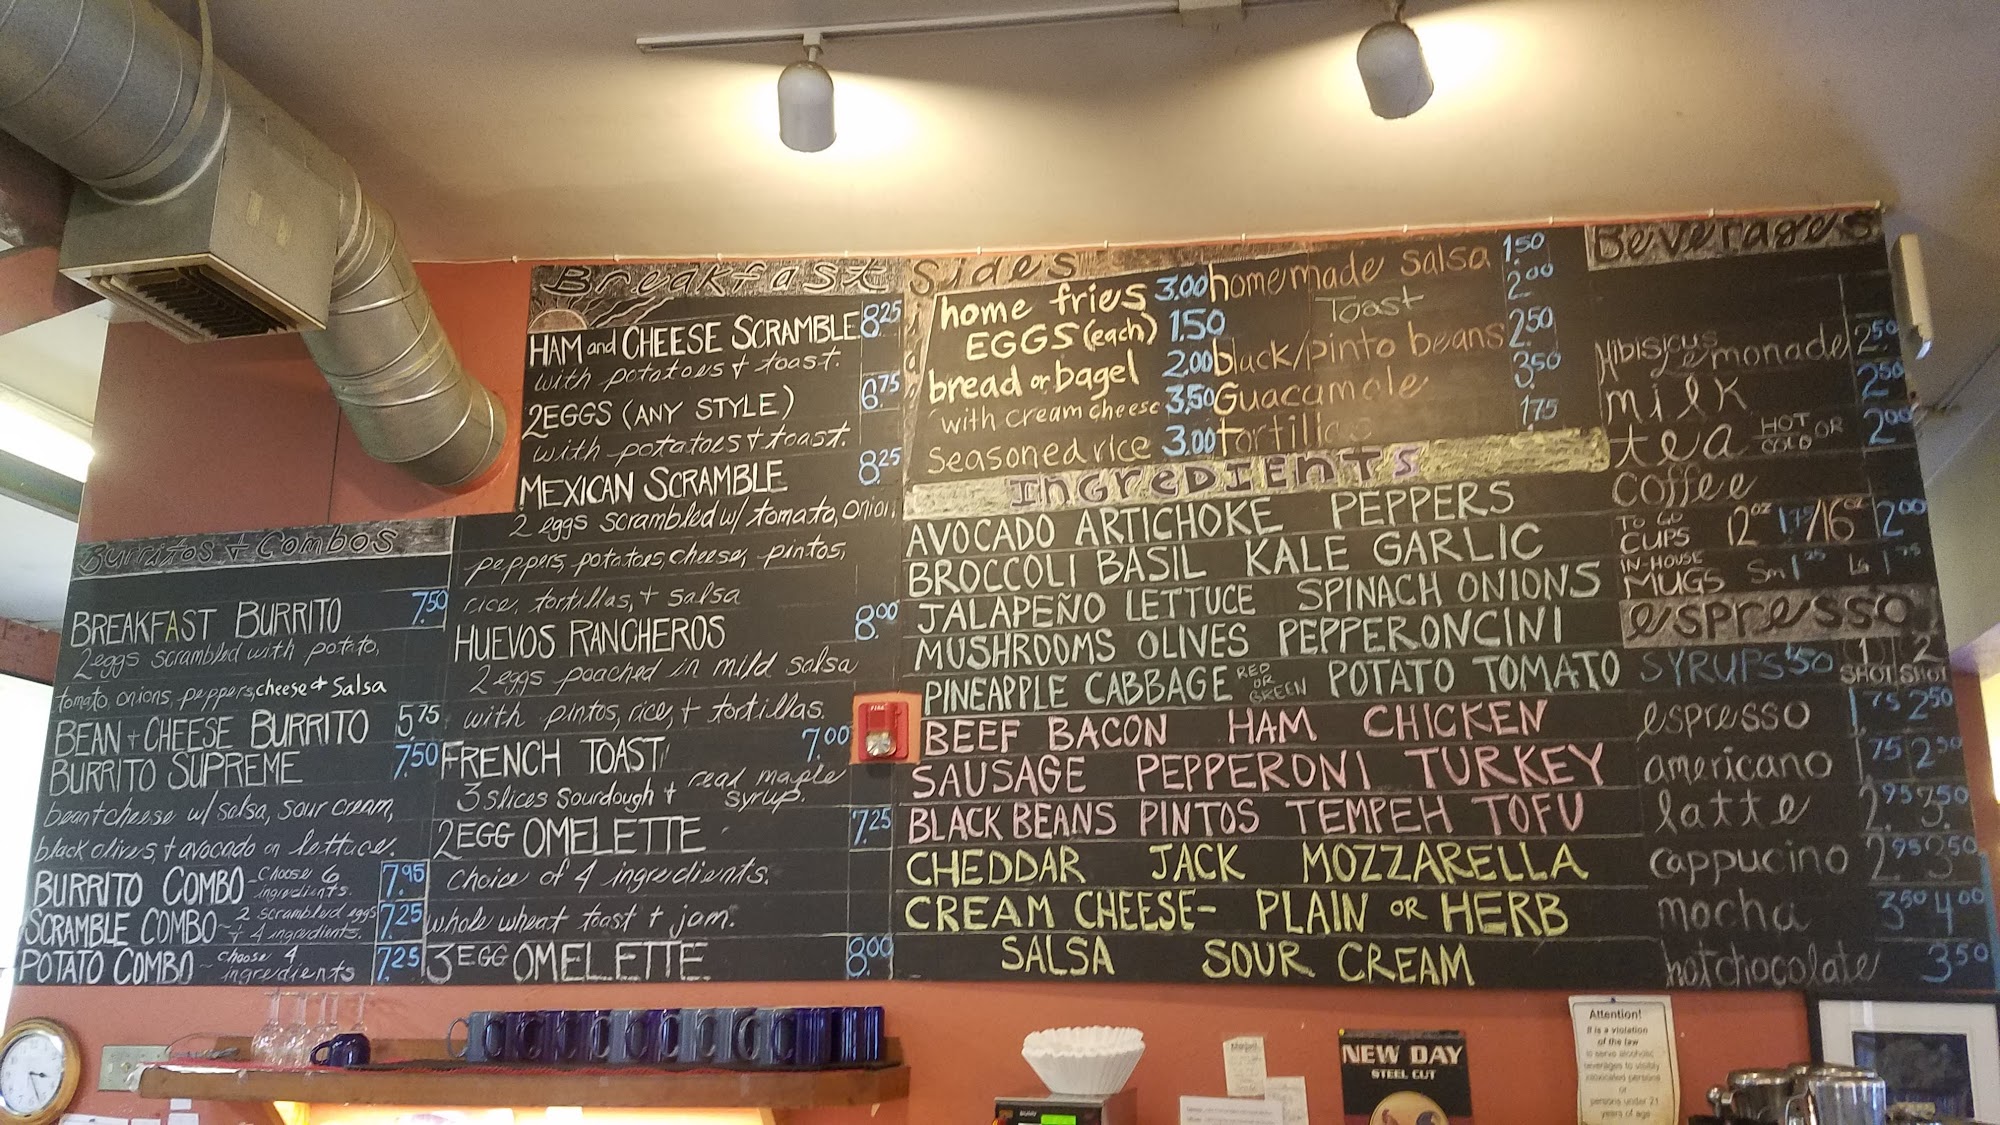 Burritos + Combos
BREAKFAST BURRITO 7.50
2 eggs scrambled with potato,
tomato, onions, peppers, cheese + Salsa
BEAN + CHEESE BURRITO 5.75
BURRITO SUPREME 7.50
bean + cheese w/ salsa, sour cream,
black olives, + avocado on lettuce.
BURRITO COMBO - choose 6 ingredients. 7.95
SCRAMBLE COMBO - 2 scrambled eggs + 4 ingredients. 7.25
POTATO COMBO - choose 4 ingredients 7.25
Breakfast
HAM and CHEESE SCRAMBLE 8.25
with potatoes + toast.
2 EGGS (ANY STYLE) 6.75
with potatoes + toast.
MEXICAN SCRAMBLE 8.25
2 eggs scrambled w/ tomato, onion,
peppers, potatoes, cheese, pintos,
rice, tortillas, + salsa
HUEVOS RANCHEROS 8.00
2 eggs poached in mild salsa
with pintos, rice, + tortillas.
FRENCH TOAST 7.00
3 slices sourdough + real maple syrup.
2 EGG OMELETTE 7.25
choice of 4 ingredients.
whole wheat toast + jam.
3 EGG OMELETTE 8.00
Sides
home fries 3.00
EGGS (each) 1.50
bread or bagel 2.00
with cream cheese 3.50
seasoned rice 3.00
homemade salsa 1.50
Toast 2.00
black/pinto beans 2.50
Guacamole 3.50
tortillas 1.75
INGREDIENTS
AVOCADO ARTICHOKE PEPPERS
BROCCOLI BASIL KALE GARLIC
JALAPEÑO LETTUCE SPINACH ONIONS
MUSHROOMS OLIVES PEPPERONCINI
PINEAPPLE CABBAGE RED OR GREEN POTATO TOMATO
BEEF BACON HAM CHICKEN
SAUSAGE PEPPERONI TURKEY
BLACK BEANS PINTOS TEMPEH TOFU
CHEDDAR JACK MOZZARELLA
CREAM CHEESE- PLAIN OR HERB
SALSA SOUR CREAM
Beverages
Hibiscus Lemonade 2.50
milk 2.50
tea HOT OR COLD 2.00
coffee
TO GO CUPS 12oz 1.75/16oz 2.00
IN-HOUSE MUGS Sm 1.25 LG 1.75
espresso
SYRUPS .50 1 SHOT 2 SHOT
espresso 1.75 2.50
americano 1.75 2.50
latte 2.95 3.50
cappucino 2.95 3.50
mocha 3.50 4.00
hot chocolate 3.50
FIRE
NEW DAY
STEEL CUT
Attention!
It is a violation
of the law
to serve alcoholic
beverages to visibly
intoxicated persons
or
persons under 21
years of age